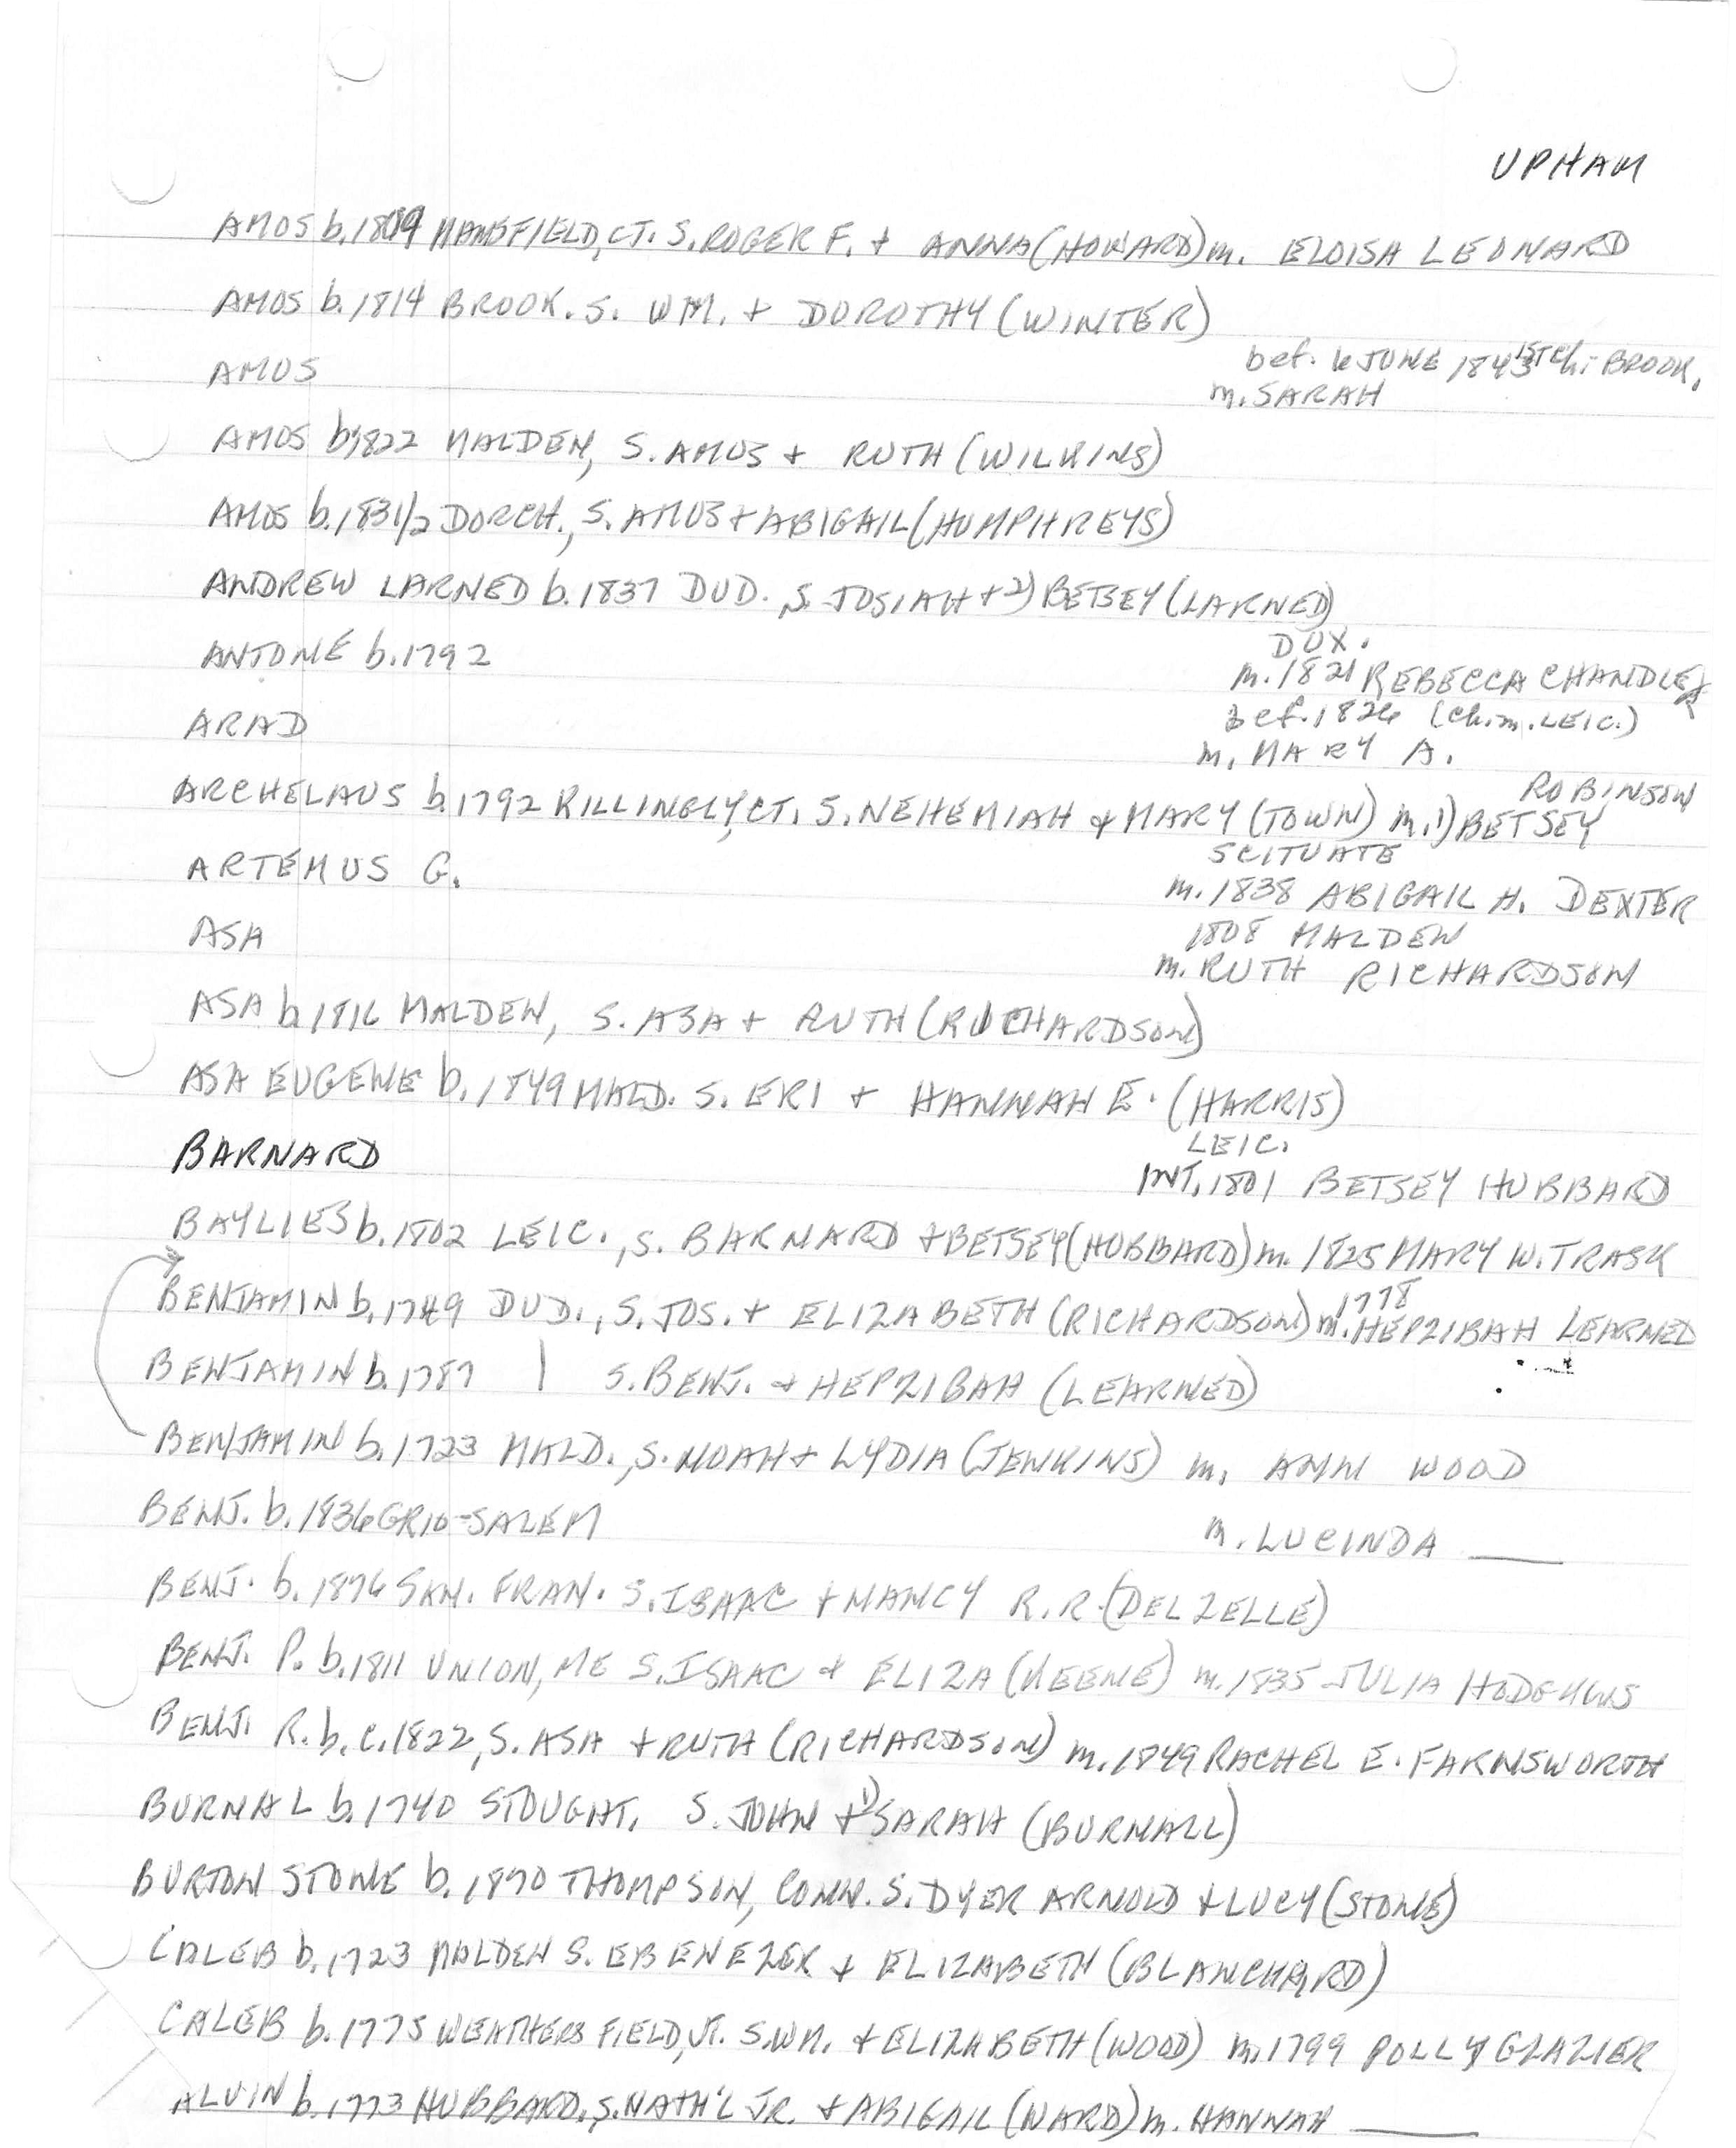 UPHAM
AMOS b. 1809 MANSFIELD, CT. S. ROGER F. + ANNA (HOWARD) m. ELOISA LEONARD
AMOS b. 1814 BROOK. S. WM. + DOROTHY (WINTER)
bef. 6 JUNE 1843 1ST Ch. BROOK.
AMOS m. SARAH
AMOS b. 1822 MALDEN, S. AMOS + RUTH (WILKINS)
AMOS b. 1831/2 DORCH., S. AMOS + ABIGAIL (HUMPHREYS)
ANDREW LARNED b. 1837 DUD., S. JOSIAH + 2) BETSEY (LARNED)
DUX.
ANTONE b. 1792 m. 1821 REBECCA CHANDLER
bef. 1826 (Ch. m. LEIC.)
ARAD m. MARY A.
ROBINSON
ARCHELAUS b. 1792 KILLINGLY, CT. S. NEHEMIAH + MARY (TOWN) m. 1) BETSEY
SCITUATE
ARTEMUS G. m. 1838 ABIGAIL H. DEXTER
1808 MALDEN
ASA m. RUTH RICHARDSON
ASA b. 1816 MALDEN, S. ASA + RUTH (RICHARDSON)
ASA EUGENE b. 1849 MALD. S. ERI + HANNAH E. (HARRIS)
LEIC.
BARNARD INT. 1801 BETSEY HUBBARD
BAYLIES b. 1802 LEIC., S. BARNARD + BETSEY (HUBBARD) m. 1825 MARY W. TRASK
1778
BENJAMIN b. 1749 DUD., S. JOS. + ELIZABETH (RICHARDSON) m. HEPZIBAH LEARNED
BENJAMIN b. 1787 | S. BENJ. + HEPZIBAH (LEARNED)
BENJAMIN b. 1723 MALD., S. NOAH + LYDIA (JENKINS) m. ANN WOOD
BENJ. b. 1836 -SALEM m. LUCINDA ____
BENJ. b. 1876 SAN. FRAN. S. ISAAC + NANCY R. R. (DELZELLE)
BENJ. P. b. 1811 UNION, ME S. ISAAC + ELIZA (KEENE) m. 1835 JULIA HODGKINS
BENJ. R. b. c. 1822, S. ASA + RUTH (RICHARDSON) m. 1849 RACHEL E. FARNSWORTH
BURNAL b. 1740 STOUGHT. S. JOHN + 1) SARAH (BURNALL)
BURTON STONE b. 1870 THOMPSON, CONN. S. DYER ARNOLD + LUCY (STONE)
CALEB b. 1723 MALDEN S. EBENEZER + ELIZABETH (BLANCHARD)
CALEB b. 1775 WEATHERSFIELD, VT. S. WM. + ELIZABETH (WOOD) m. 1799 POLLY GLAZIER
ALVIN b. 1773 HUBBARD. S. NATH'L JR. + ABIGAIL (WARD) m. HANNAH ____